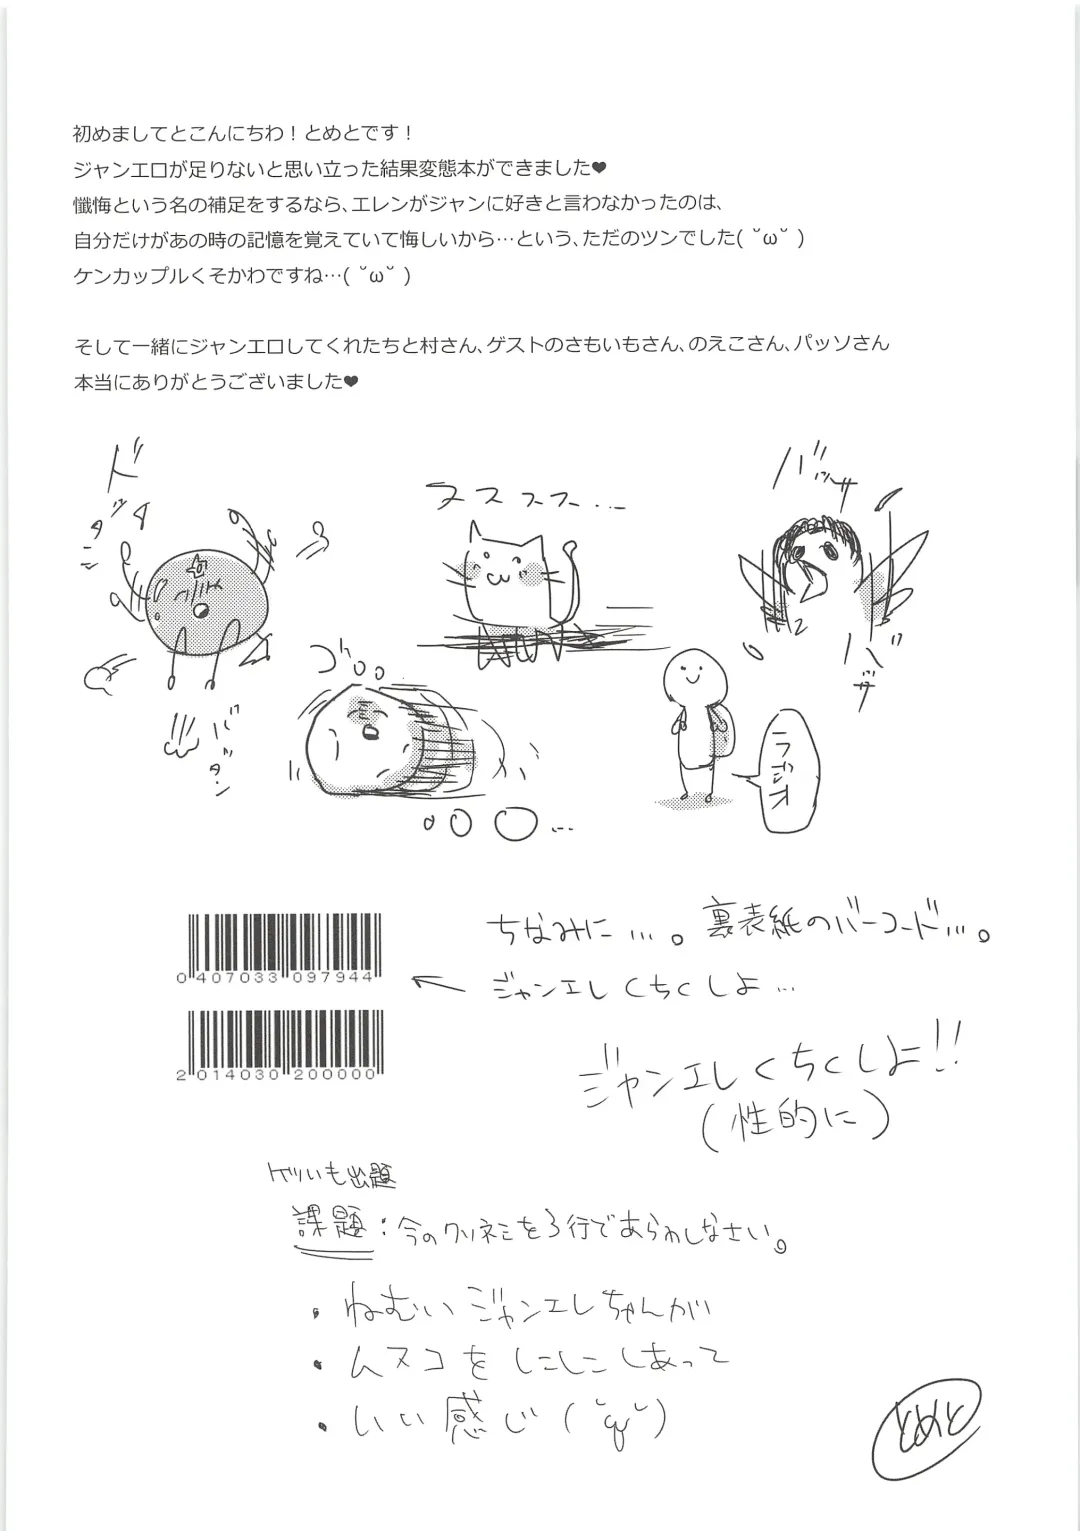 初めましてとこんにちわ！とめとです！
ジャンエロが足りないと思い立った結果変態本ができました❤
懺悔という名の補足をするなら、エレンがジャンに好きと言わなかったのは、
自分だけがあの時の記憶を覚えていて悔しいから…という、ただのツンでした( ˘ω˘ )
ケンカップルくそかわですね…( ˘ω˘ )
そして一緒にジャンエロしてくれたたちと村さん、ゲストのさもいもさん、のえこさん、パッソさん
本当にありがとうございました❤
ドッタン
バッタン
ヌスススス…
バッサ
バサ
ゴロ
ラジオ
ちなみに…。裏表紙のバーコード…。
0 407033 097944
ジャンエレくちくしよ…
2 014030 200000
ジャンエレくちくしよ!!
(性的に)
ゲツいも出題
課題：今のクソネミを3行であらわしなさい。
・ねむいジャンエレちゃんが
・ムスコをしこしこしあって
・いい感じ(˘ω˘)
とめと